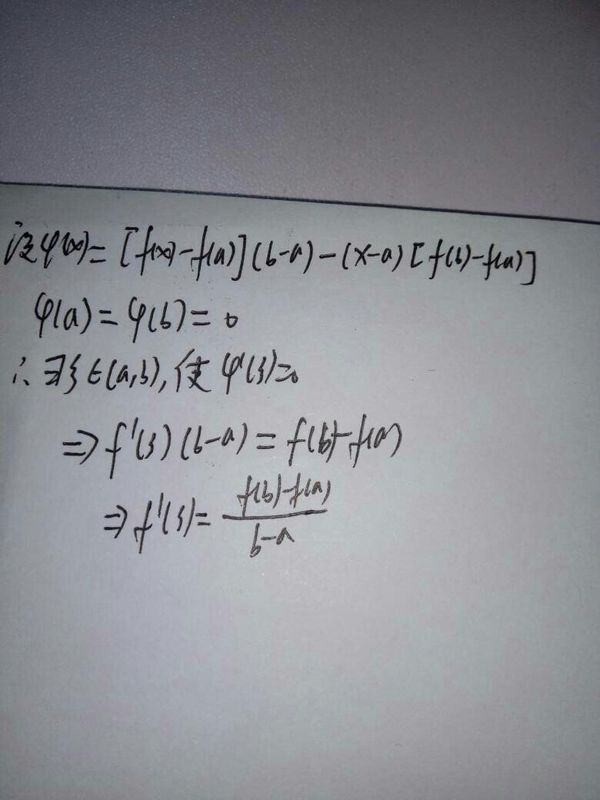 设φ(x)=[f(x)-f(a)](b-a)-(x-a)[f(b)-f(a)]
φ(a)=φ(b)=0
∴∃ξ∈(a,b),使φ'(ξ)=0
⇒f'(ξ)(b-a)=f(b)-f(a)
⇒f'(ξ)=\frac{f(b)-f(a)}{b-a}